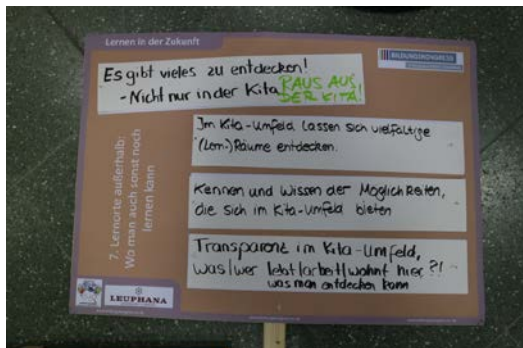 Lernen in der Zukunft
BILDUNGSKONGRESS
Es gibt vieles zu entdecken!
- Nicht nur in der Kita RAUS AUS
DER KITA!
7. Lernorte außerhalb:
Wo man auch sonst noch
lernen kann
Im Kita-Umfeld lassen sich vielfältige
(Lern-)Räume entdecken.
Kennen und Wissen der Möglichkeiten,
die sich im Kita-Umfeld bieten
Transparenz im Kita-Umfeld,
was/wer lebt/arbeit/wohnt hier?!
was man entdecken kann
LEUPHANA